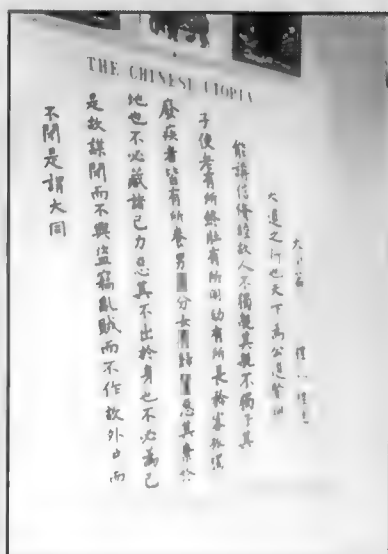 THE CHINESE UTOPIA
大道之行也天下為公選
能講信修睦故人不獨親其親不獨子其
子使老有所終壯有所用幼有所長矜寡孤獨
廢疾者皆有所養男分女歸惡其棄於
地也不必藏諸己力惡其不出於身也不必為己
是故謀閉而不興盜竊亂賊而不作故外戶而
不閉是謂大同